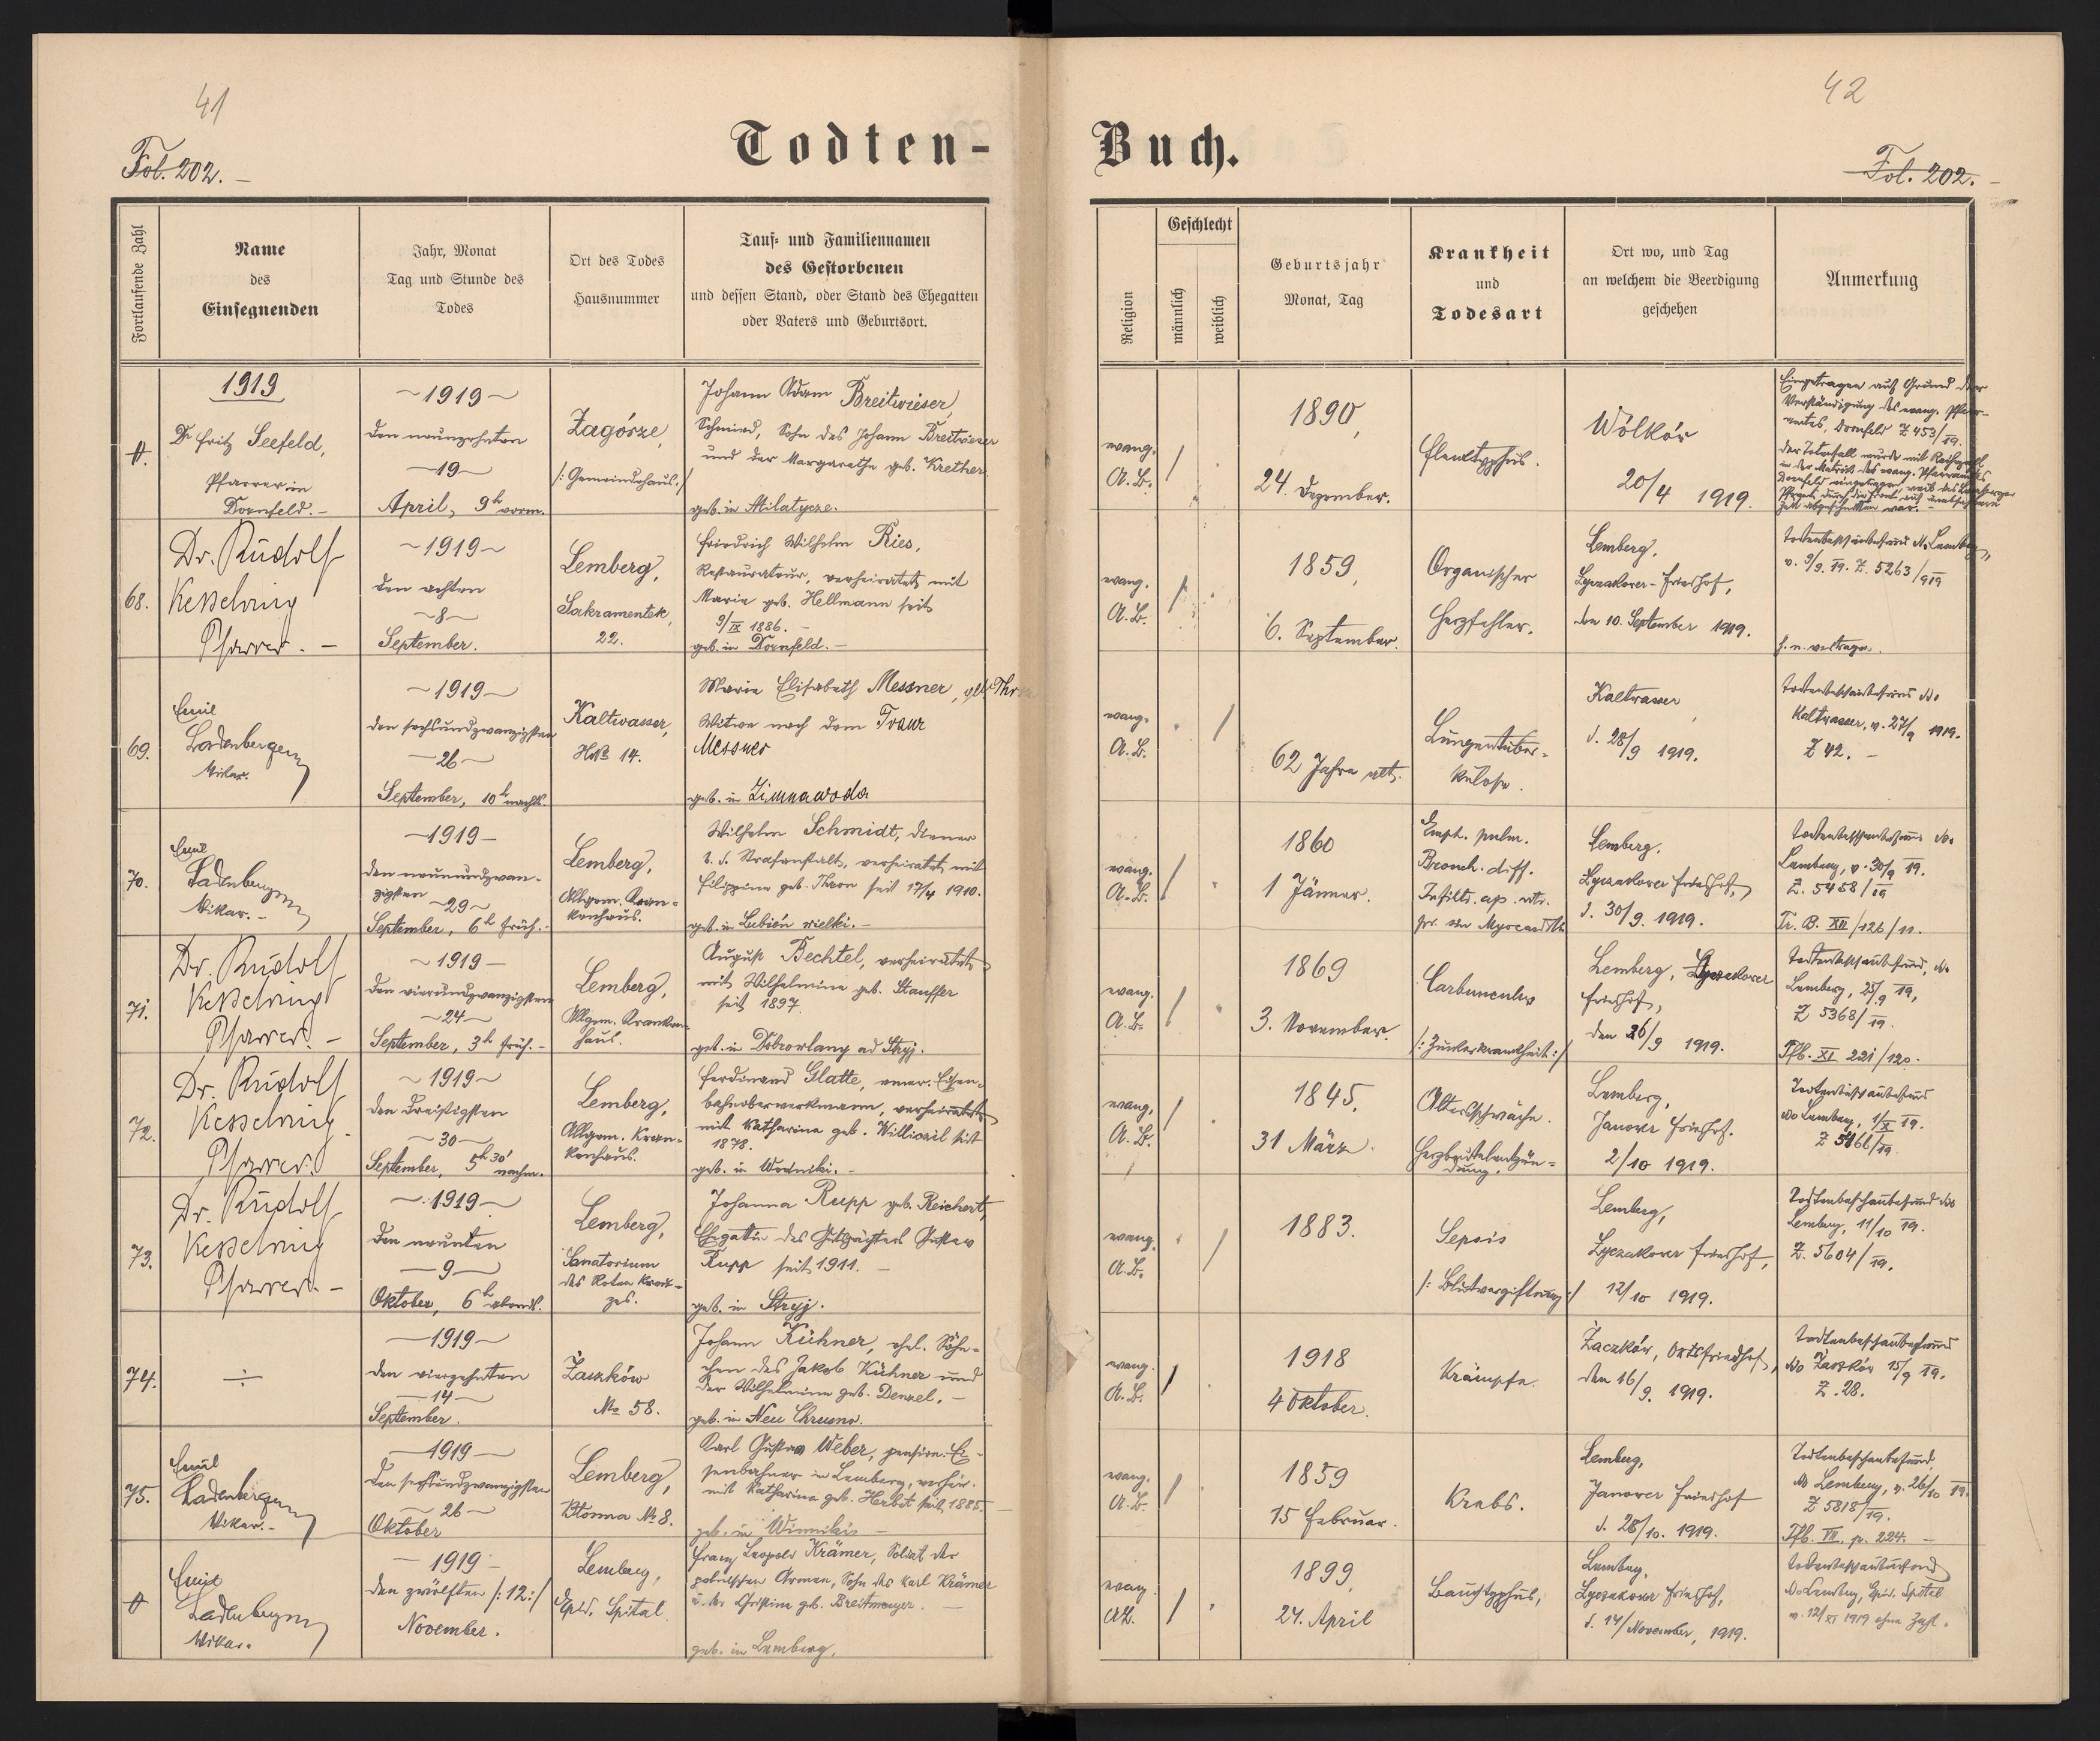 41
42
Todten-
Buch.
Fol. 202. –
Fol. 202. –
Fortlaufende Zahl
Name
des
Einsegnenden
Jahr, Monat
Tag und Stunde des
Todes
Ort des Todes
Hausnummer
Tauf= und Familiennamen
des Gestorbenen
und dessen Stand, oder Stand des Ehegatten
oder Vaters und Geburtsort.
Religion
Geschlecht
männlich
weiblich
Geburtsjahr
Monat, Tag
Krankheit
und
Todesart
Ort wo, und Tag
an welchem die Beerdigung
geschehen
Anmerkung
1919
Dr Fritz Seefeld,
Pfarrer in
Dornfeld. –
~1919~
den neunzehnten
–19–
April, 9h vorm.
Zagórze,
/: Gemeindehaus. /
Johann Adam Breitwieser,
Schmied, Sohn des Johann Breitwieser
und der Margarethe geb. Krether.
geb. in Milatycze.
evang.
A. B.
/
1890,
24. Dezember.
Flecktyphus.
Wólków
20/4 1919.
Eingetragen auf Grund der
Verständigung des evang. Pfarr-
amtes, Dornfeld Z 453/19.
68.
Dr. Rudolf
Kesselring
Pfarrer. –
~1919~
den achten
~8~
September.
Lemberg,
Sakramentek
22.
Friedrich Wilhelm Ries,
Restaurateur, verheiratet mit
Marie geb. Hellmann seit
9/IX 1886. –
geb. in Dornfeld. –
evang.
A. B.
/
1859,
6. September.
Organischer
Herzfehler.
Lemberg,
Lyczakower-Friedhof,
den 10. September 1919.
Todtenbeschaubefund do. Lemberg,
v. 9/9. 19. Z. 5263/919
69.
Emil
Ladenberger
Vikar.
~1919~
den sechsundzwanzigsten
–26–
September, 10h nachts.
Kaltwasser,
HNo 14.
Marie Elisabeth Messner,
Witwe nach dem Franz
Messner
geb. in Zimnawoda
evang.
A. B.
/
62 Jahre alt.
Lungentuber-
kulose.
Kaltwasser,
d. 28/9 1919.
Todtenbeschaubefund do.
Kaltwasser, v. 27/9 1919.
Z 42. –
70.
Emil
Ladenberger
Vikar. –
–1919–
den neunundzwan-
zigsten
~29~
September, 6h früh. –
Lemberg,
Allgem. Kran-
kenhaus.
Wilhelm Schmidt, Diener
b. d. Strafanstalt, verheiratet mit
Filippine geb. Thron seit 17/4 1910.
geb. in Lubień wielki. –
evang.
A. B.
/
1860
1 Jänner.
Emph. pulm.
Bronch. diff.
Lemberg,
Lyczakower Friedhof,
d. 30/9. 1919.
Todtenbeschaubefund do.
Lemberg, v. 30/9 19.
Z. 5458/19
Tr. B. XII/126/11.
71.
Dr. Rudolf
Kesselring
Pfarrer. –
~1919–
den vierundzwanzigsten
~24~
September, 3h früh. –
Lemberg,
Allgem. Kranken-
haus.
August Bechtel, verheiratet
mit Wilhelmine geb. Stauffer
seit 1897.
geb. in Dobrowlany ad Stryj.
evang.
A. B.
/
1869
3. November.
Carbunculus
/: Zuckerkrankheit :/
Lemberg, Lyczakower
Friedhof,
den 26/9 1919.
Todtenbeschaubefund, do.
Lemberg, 25/9 19,
Z 5368/19.
Tfb. XI 221/120.
72.
Dr. Rudolf
Kesselring
Pfarrer.
~1919~
den dreißigsten
~30~
September, 5h30' nachm.
Lemberg,
Allgem. Kran-
kenhaus.
Ferdinand Glatte, emer. Eisen-
bahnoberwerkmann, verheiratet
mit Katharina geb. seit
1878.
geb. in Wodniki. –
evang.
A. B.
/
1845.
31 März.
Altersschwäche.
Herzbeutelentzün-
dung.
Lemberg,
Janower Friedhof.
2/10 1919.
Todtenbeschaubefund
do Lemberg, 1/X 19.
73.
Dr. Rudolf
Kesselring
Pfarrer. –
~1919~
den neunten
–9–
Oktober, 6h abends.
Lemberg,
Sanatorium
des Roten Kreu-
zes.
Johanna Rupp geb. Reichert,
Ehegattin des Gutspächters Gustav
Rupp seit 1911. –
geb. in Stryj.
evang.
A. B.
/
1883.
Sepsis
/: Blutvergiftung :/
Lemberg,
Lyczakower Friedhof,
12/10 1919.
Todtenbeschaubefund do
Lemberg, 11/10 19.
Z. 5604/19.
74.
÷
–1919~
den vierzehnten
–14–
September.
Żaszków
No 58.
Johann Kühner, ehel. Söhn-
chen des Jakob Kühner und
der Wilhelmine geb. Denzel. –
geb. in Neu Chrusno.
evang.
A. B.
/
1918
4 Oktober.
Krämpfe.
Zaczków, Ortsfriedhof,
den 16/9. 1919.
Todtenbeschaubefund
do Zaszków 15/9 19.
Z. 28.
75.
Emil
Ladenberger
Vikar. –
–1919–
den sechsundzwanzigsten
–26–
Oktober
Lemberg,
Błonna No 8.
Karl Gustav Weber, pension. Ei-
senbahner in Lemberg, verheir.
mit Katharina geb. Herbst seit 1885. –
geb. in Winniki –
evang.
A. B.
/
1859
15 Februar.
Krebs.
Lemberg,
Janower Friedhof
d. 28/10. 1919.
Todtenbeschaubefund,
do Lemberg, v. 26/10 19.
Z 5818/19.
Tfb. VII. p. 224. –
Emil
Ladenberger
Vikar.
–1919–
den zwölften /:12:/
November.
Lemberg,
Epid. Spital.
Franz Leopold Krämer, Soldat der
polnischen Armee, Sohn des Karl Krämer
u. der Christine geb. Breitmayer. –
geb. in Lemberg.
evang.
AB.
/
1899,
24. April
Bauchtyphus,
Lemberg,
Lyczakower Friedhof,
d. 14/November, 1919.
Todtenbeschaubefund
do Lemberg, Epid. Spital
v. 12/XI 1919 ohne Zahl.